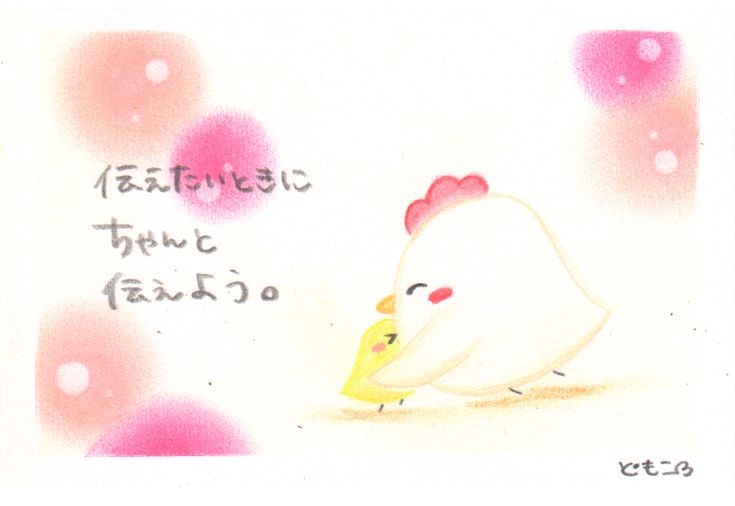 伝えたいときに
ちゃんと
伝えよう。
ともころ